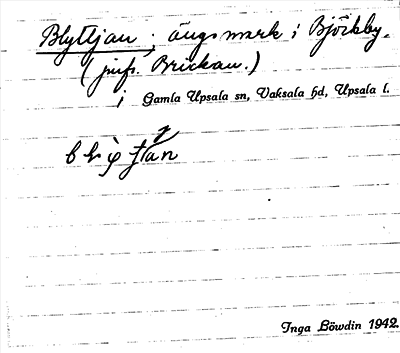 Blyttjan; ängsmark i Björkby.
(jmfs. Brickan.)
i Gamla Upsala sn, Vaksala hd, Upsala l.
Inga Löwdin 1942.